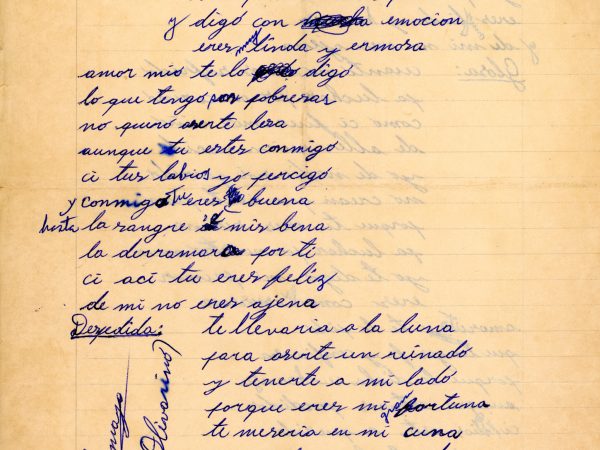 y digo con emocion
eres linda y ermosa
amor mio te lo digo
lo que tengo son pobresas
no quero aserte lesa
aunque tu estes conmigo
ci tus labios yo percigo
y conmigo tu eres buena
hasta la sangre mis bena
la derramara por ti
ci aci tu eres feliz
de mi no eres ajena
Despedida: te llevaria a la luna
para aserte un reinado
y tenerte a mi lado
porque eres mi fortuna
te meseria en mi cuna
Olivarino